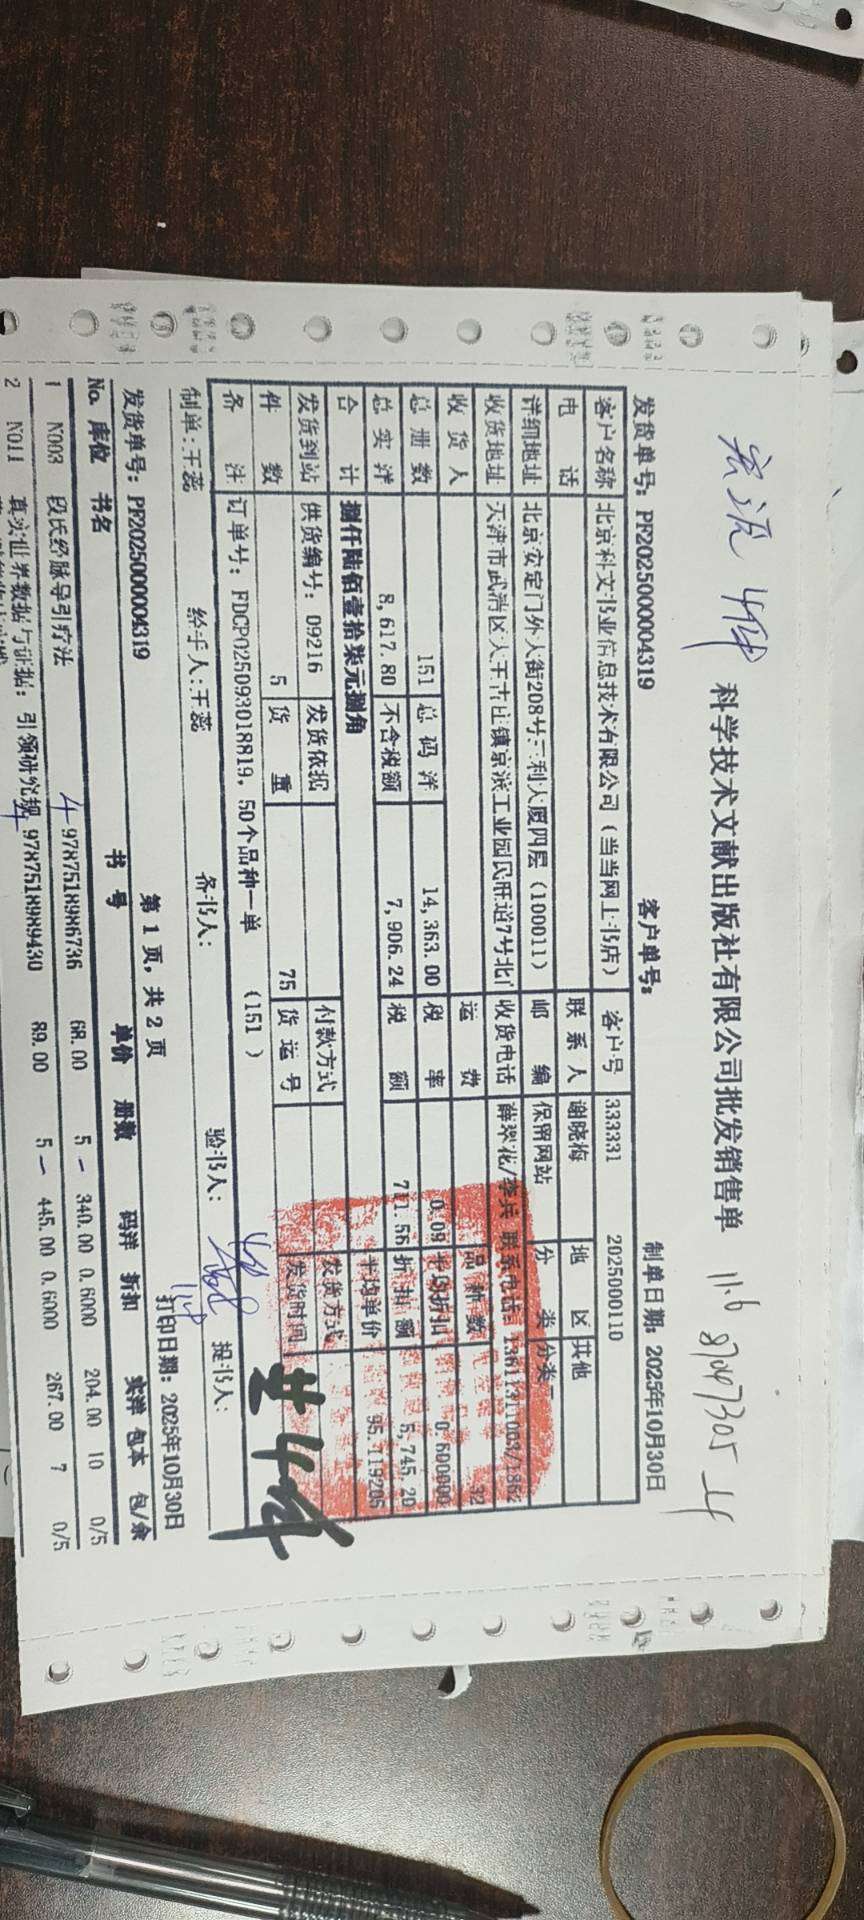 11.6 87047305
科学技术文献出版社有限公司批发销售单
发货单号: PF2025000004319 客户单号: 制单日期: 2025年10月30日
客户名称 北京科文书业信息技术有限公司(当当网上书店) 客户号 333331 2025000110
电话 联系人 谢晓梅 地区 其他
详细地址 北京安定门外大街208号三利大厦四层(100011) 邮编 保留网站 分类 分类二
收货地址 天津市武清区大王古庄镇京滨工业园民旺道7号北门 收货电话 薛翠花/李兵 联系电话:
收货人 运费 品种数 32
总册数 151 总码洋 14,363.00 税率 0.09 平均折扣 0.600000
总实洋 8,617.80 不含税额 7,906.24 税额 711.56 折扣额 5,745.20
合计 捌仟陆佰壹拾柒元捌角 平均单价 95.119205
发货到站 供货编号: 09216 发货依据 付款方式 发货方式
件数 5 货重 75 货运号 发货时间
备注 订单号: FDCP025093018819, 50个品种一单 (151 )
制单:王蕊 经手人:王蕊 备书人: 验书人: 提书人:
共4件
第 1 页, 共 2 页 打印日期: 2025年10月30日
发货单号: PF2025000004319
No. 库位 书名 书号 单价 册数 码洋 折扣 实洋 包本 包/余
1 N003 段氏经脉导引疗法 9787518986736 68.00 5 340.00 0.6000 204.00 10 0/5
2 N011 真实世界数据与证据: 引领研究规 9787518989430 89.00 5 445.00 0.6000 267.00 7 0/5